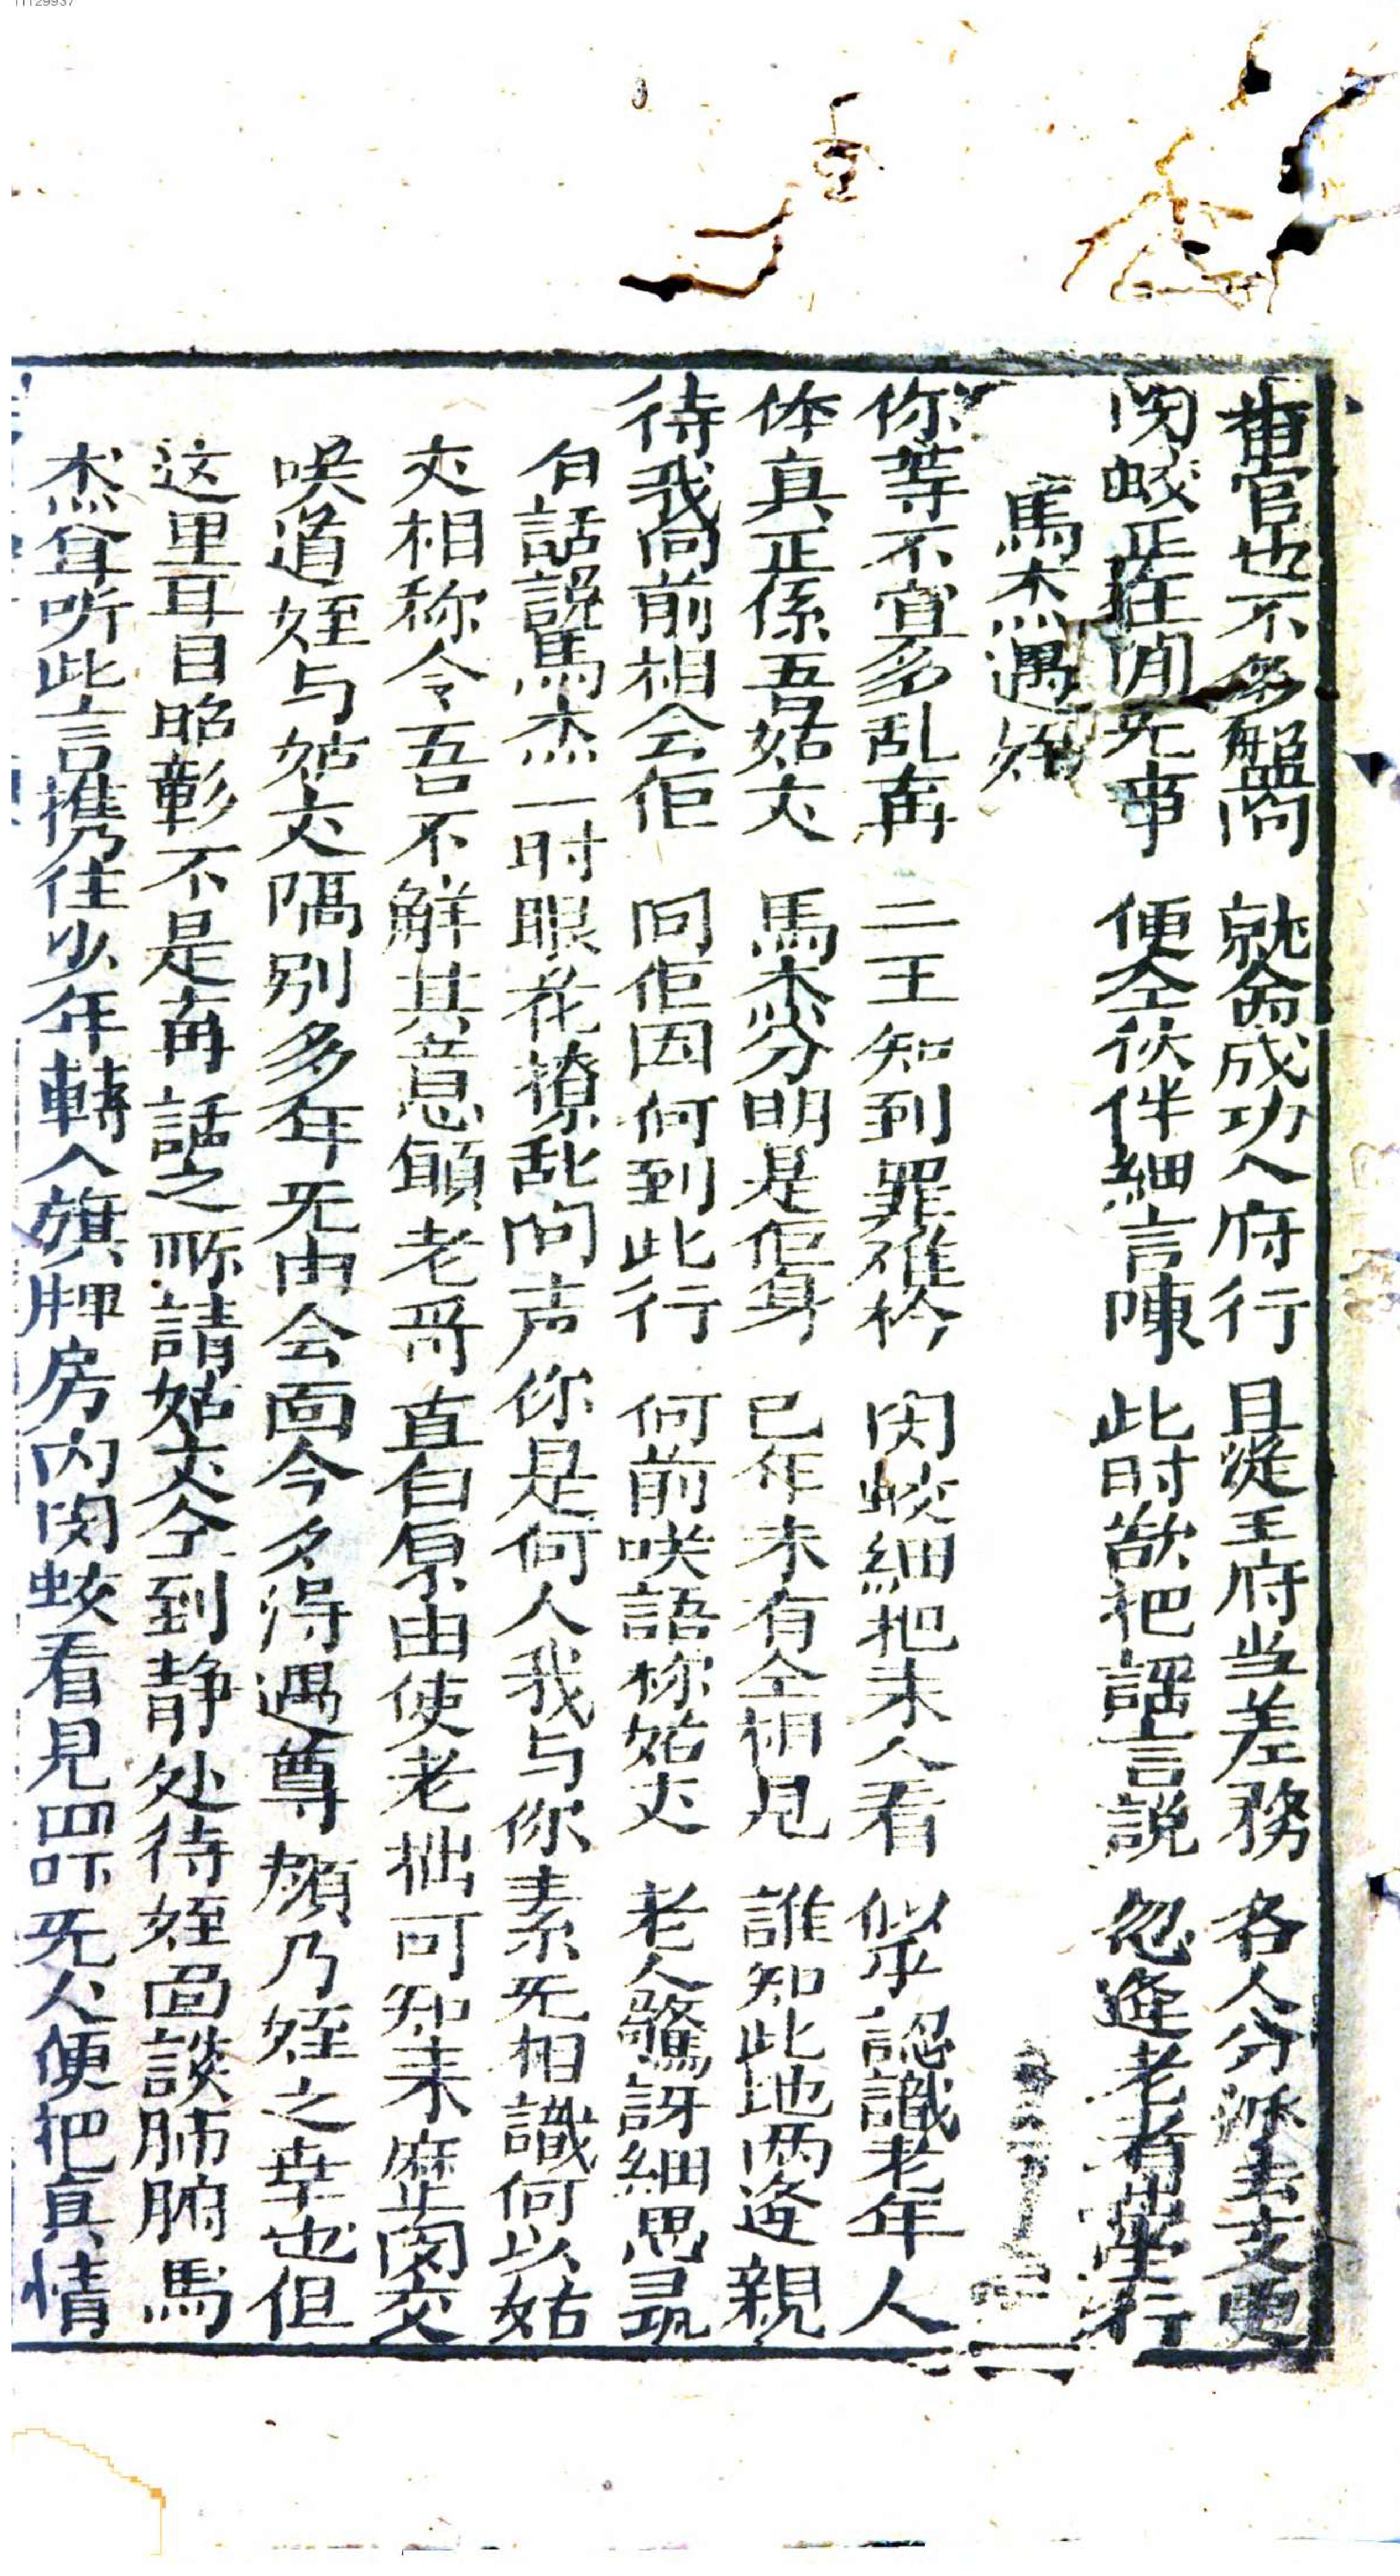 曹官也不多盤問 就命成功入府行 且從王府当差务 各人分派去支更
闵蛟正在闲无事 便仝伙伴細言陳 此时欲把謡言説 忽逢老者堂行
馬杰遇姪
你等不宜多乱再 二王知到罪难衿 闵蛟細把来人看 似乎認識老年人
体真正係吾姑丈 馬杰分明是佢身 已年未有仝相見 誰知此地两逢親
待我向前相会佢 问佢因何到此行 何前咲語称姑丈 老人驚訝細思尋
白話説馬杰一时眼花撩乱问声你是何人我与你素无相識何以姑
丈相称令吾不觧其意願老哥直白原由使老拙可知来庶正闵交
唉道姪与姑丈隔别多年无由会面今夕得遇尊顔乃姪之幸也但
这里耳目昭彰不是再話之所請姑丈仝到静处待姪面談肺腑馬
杰耸听此言携住少年轉入旗牌房内闵蛟看見四吓无人便把真情